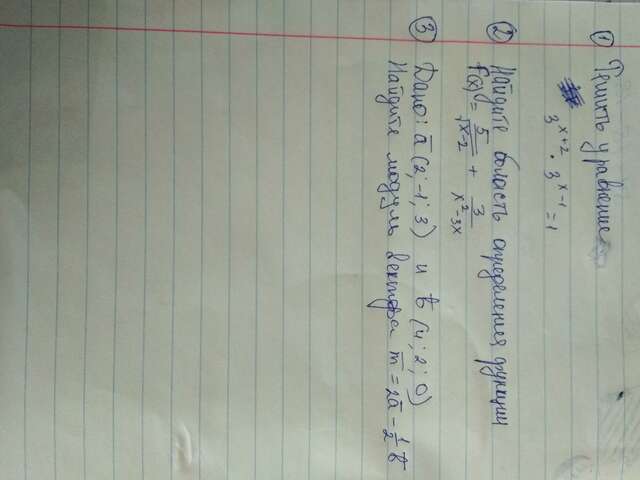 ① Решить уравнение
3^{x+2} · 3^{x-1} = 1
② Найдите область определения функции
f(x) = \frac{5}{\sqrt{x-2}} + \frac{3}{x^2-3x}
③ Дано: ā (2; -1; 3) и b̄ (4; 2; 0)
Найдите модуль вектора m̄ = 2ā - \frac{1}{2} b̄